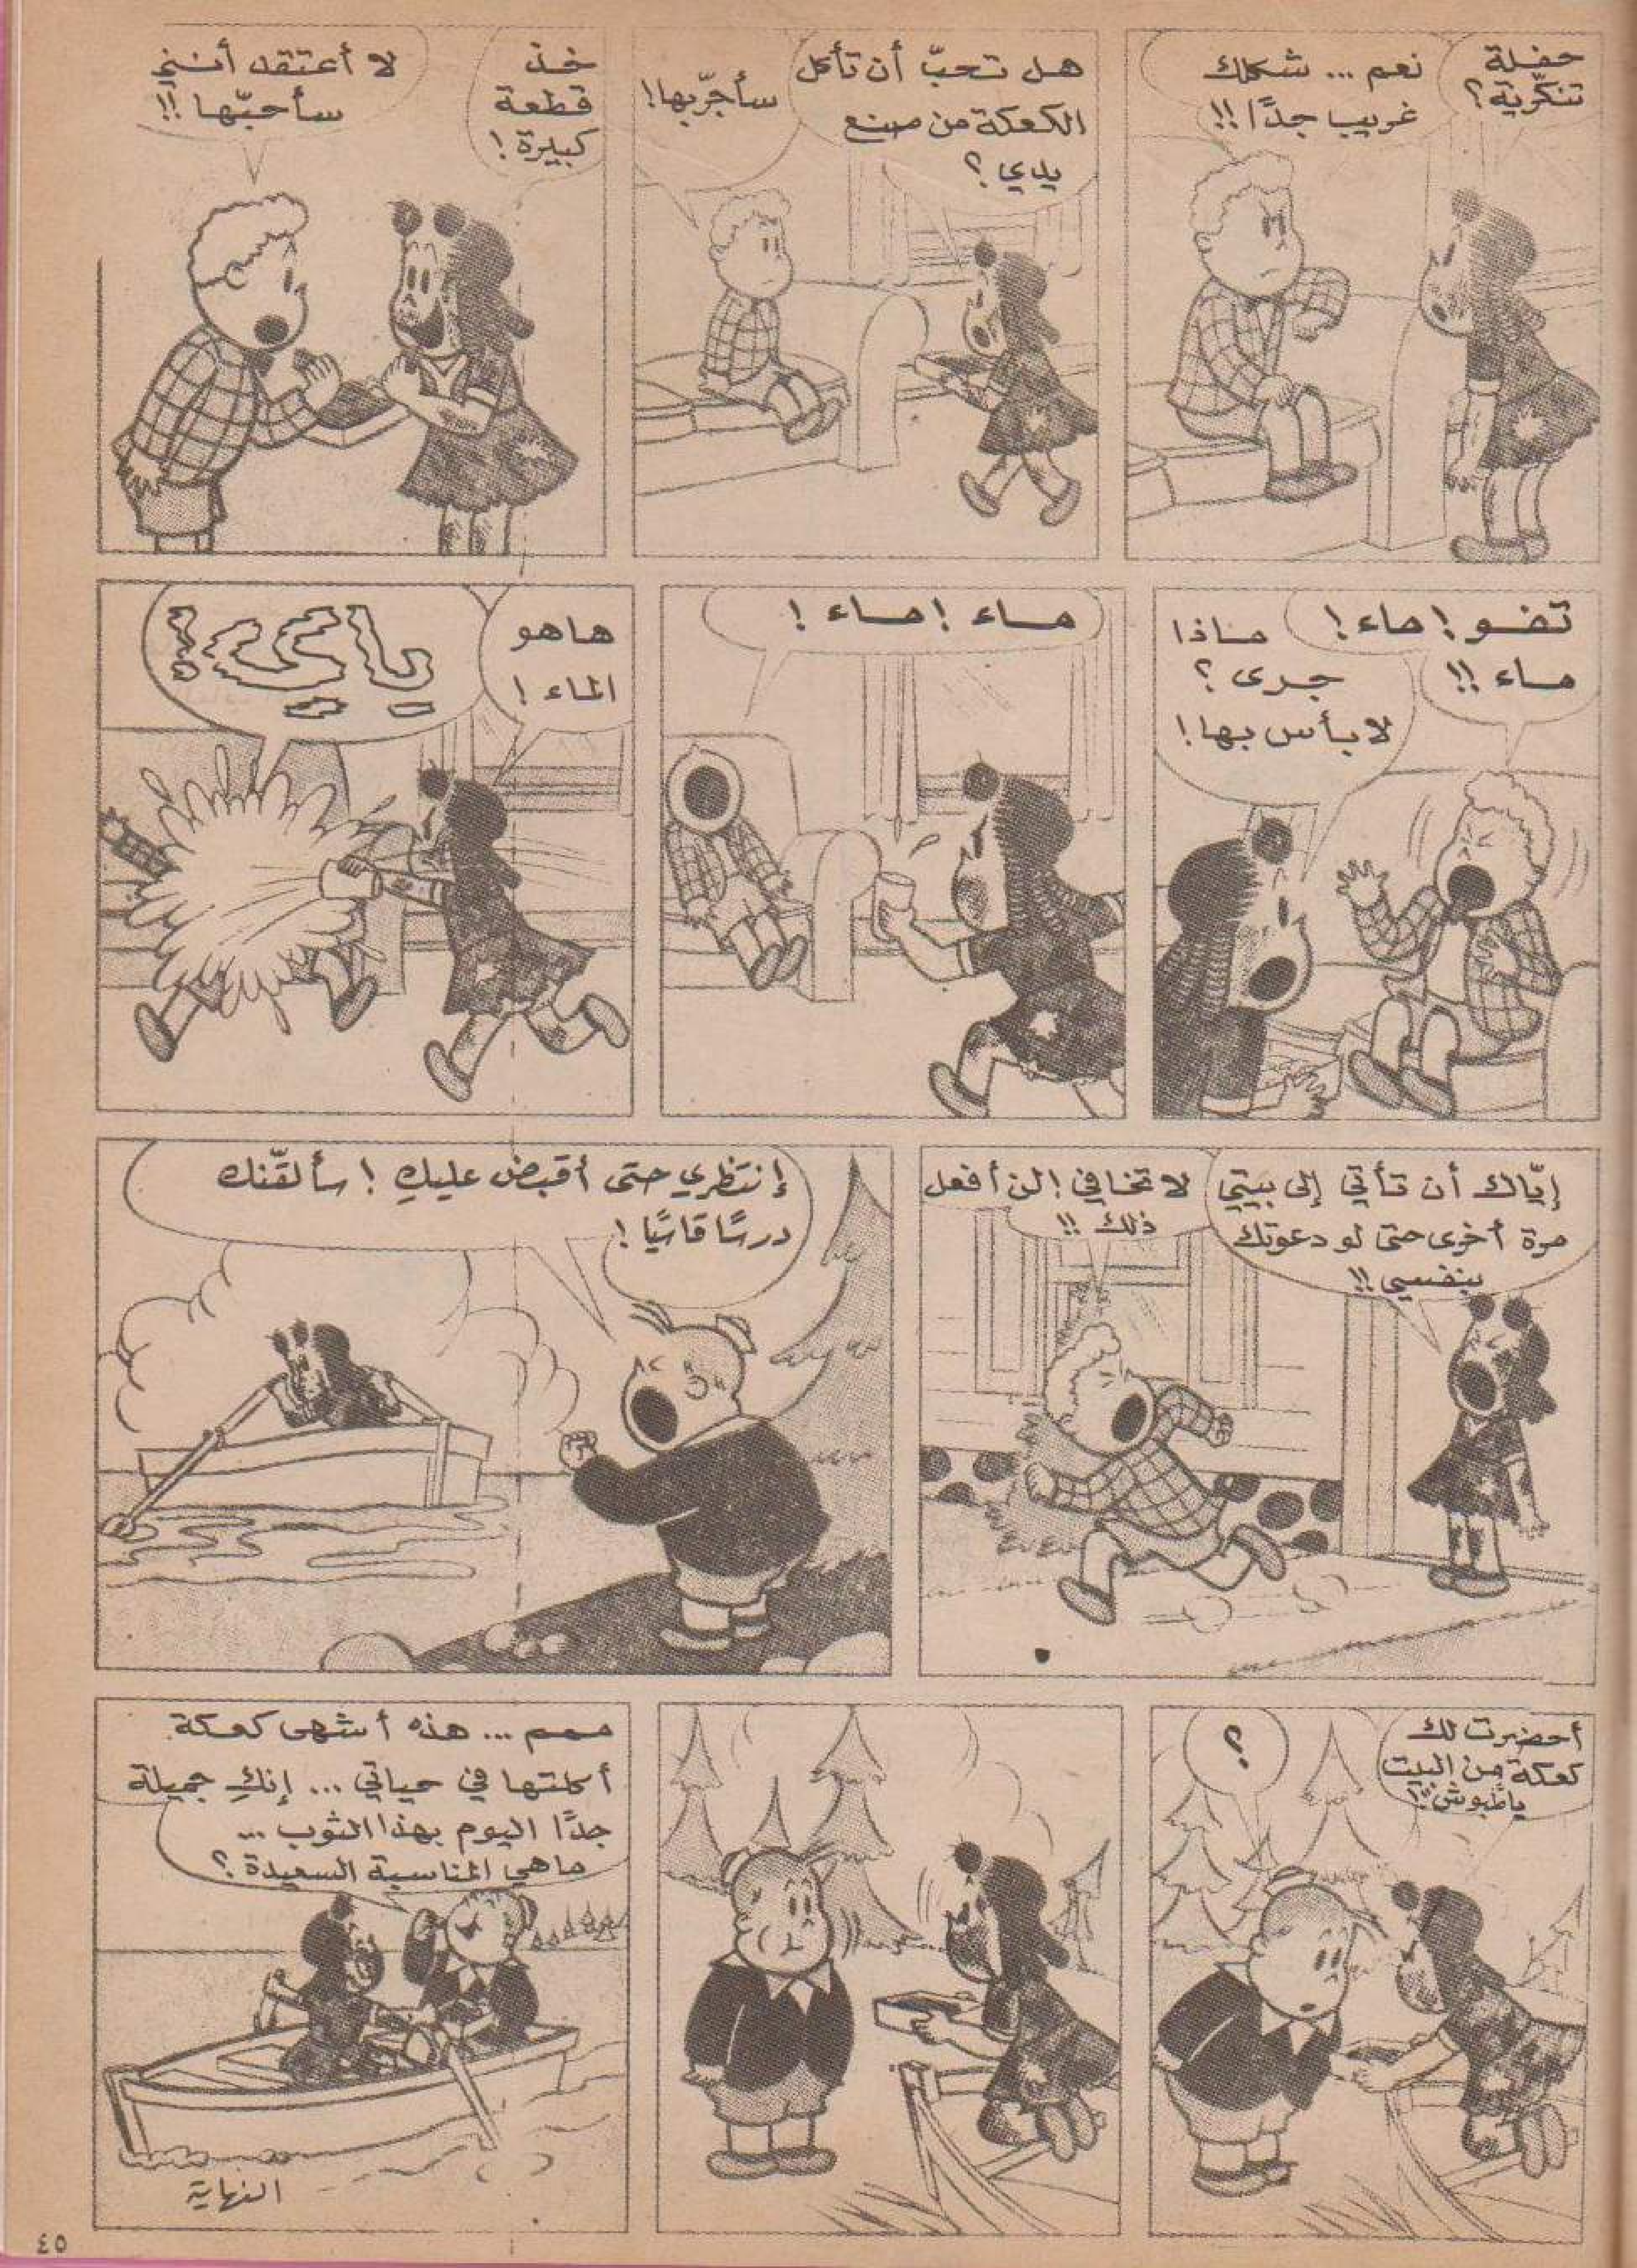 حفلة
تنكّرية؟
نعم ... شكلك
غريب جدًا!!
هل تحبّ أن تأكل
الكعكة من صنع
يدي؟
سأجرّبها!
خذ
قطعة
كبيرة!
لا أعتقد أنني
سأحبّها!!
تفو! ماء!
ماء!!
ماذا
جرى؟
لا بأس بها!
ماء! ماء!
هاهو
الماء!
إيّاك أن تأتي إلى بيتي
مرة أخرى حتى لو دعوتك
بنفسي!!
لا تخافي! لن أفعل
ذلك!!
إنتظري حتى أقبض عليكِ! سألقّنك
درسًا قاسيًا!
أحضرت لك
كعكة من البيت
يا طبوش!!
؟
ممم ... هذه أشهى كعكة
أكلتها في حياتي ... إنكِ جميلة
جدًا اليوم بهذا الثوب ...
ما هي المناسبة السعيدة؟
النهاية
٤٥